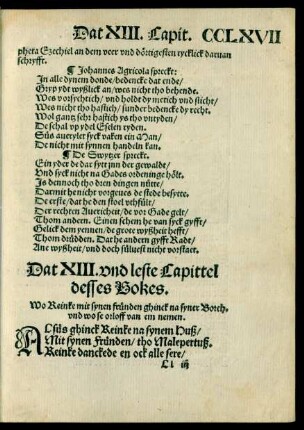 Dat XIII. Capit. CCLXVII
pheta Ezechiel an dem veer vnd dörtigesten rycklick daruan
schryfft.
¶ Johannes Agricola spreckt:
In alle dynem donde/ bedencke dat ende/
Gryp ydt wyßlick an/ wes nicht tho behende.
Wes vorsychtich/ vnd holdt dy menich vnd slicht/
Wes nicht tho hastich/ sunder bedencke dy recht.
Wol gantz sehr hastich ys tho vnryden/
De schal vp ydel Eseln ryden.
Süs auerylet syck vaken ein Man/
De nicht mit synnen handeln kan.
¶ De Swytzer spreckt.
Ein yder de dar sytt jnn der gewalde/
Vnd syck nicht na Gades ordeninge hölt.
Is dennoch tho den dingen nütte/
Darmit he nicht vorgeues de stede besytte.
De erste/ dat he den stoel vthfült/
Der rechten Auericheit/ de vor Gade gelt/
Thom andern. Einen schem he van syck gyfft/
Gelick dem yennen/ de grote wyßheit hefft/
Thom drüdden. Dat he andern gyfft Radt/
Ane wyßheit/ vnd doch süluest nicht vorstaet.
Dat XIII. vnd leste Capittel
desses Bokes.
Wo Reinke mit synen fründen ghinck na syner Borch/
vnd wo se orloff van em nemen.
Alsüs ghinck Reinke na synem Huß/
Mit synen Fründen/ tho Malepertuß.
Reinke danckede en ock alle sere/
Ll iij